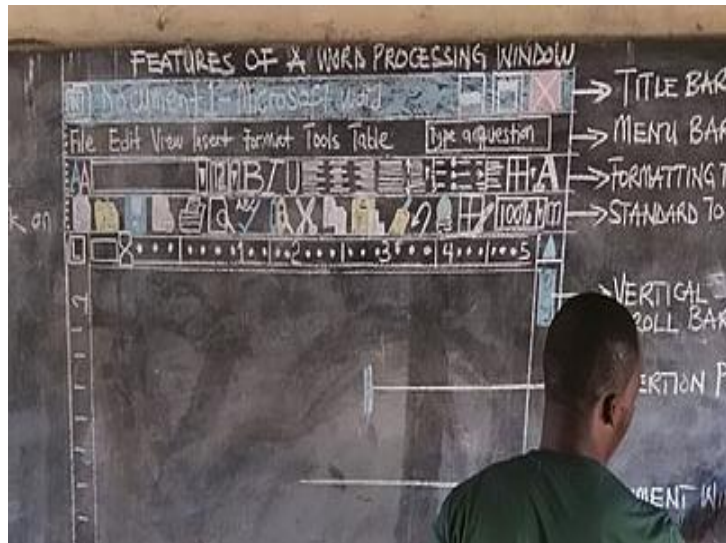 FEATURES OF A WORD PROCESSING WINDOW
Document 1 - Microsoft Word
TITLE BAR
File Edit View Insert format Tools Table
Type a question
MENU BAR
B I U
A
FORMATTING T
k on
ABC
100%
STANDARD TO
L
1 2 3 4 5
VERTICAL
ROLL BAR
ERTION P
UMENT WI